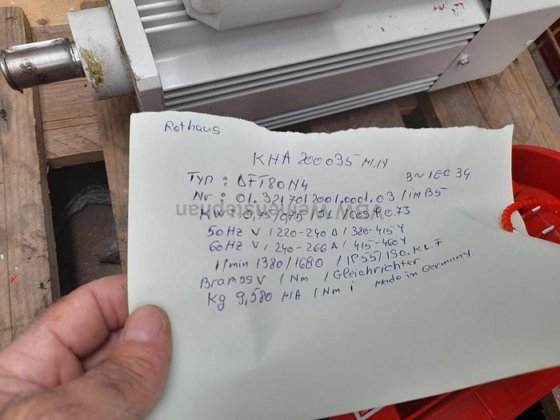 Rothaus
KHA 200035 M.14
Typ : DFT80N4 3~ IEC 34
Nr : 01.3217012001.0001.03 / im B5
KW : 0,75/0,75 / S1 / cos φ 0.73
50Hz V / 220-240 Δ / 380-415 Y
60Hz V / 240-266 Δ / 415-460 Y
1/min 1380/1680 / IP55 / ISO. KL. F
Brams V / Nm / Gleichrichter
Kg 9,580 MA / Nm i Made in Germany
BW Weihenstephan